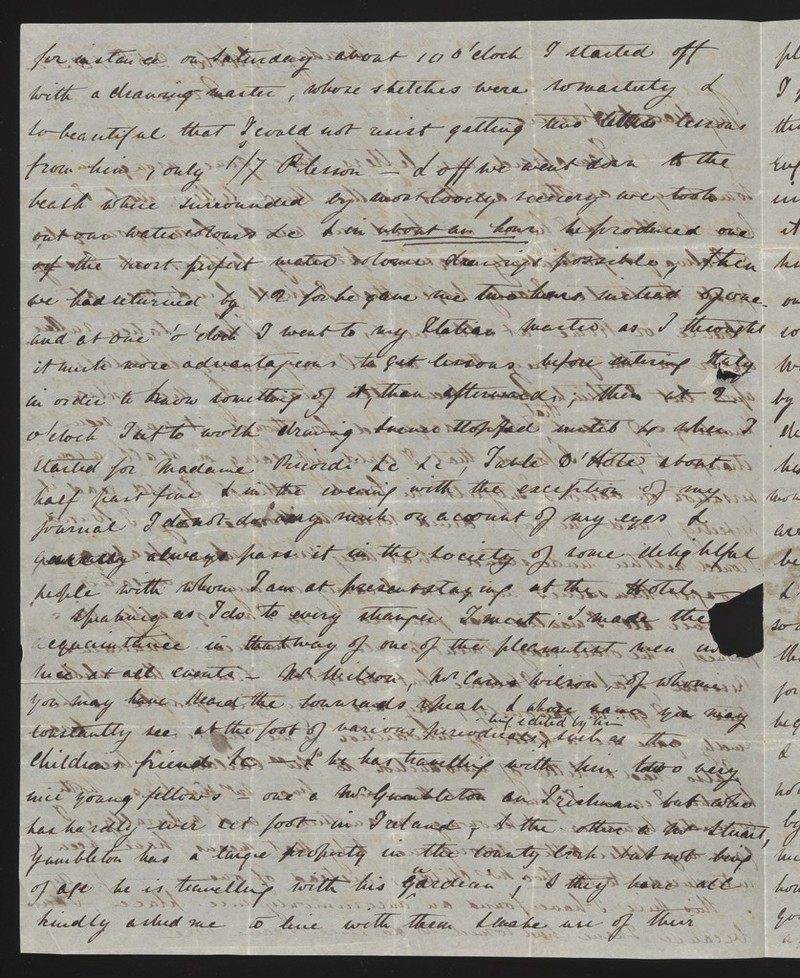 for instance on Saturday about 10 O'clock I started off
with a drawing master, whose sketches were so masterly &
so beautiful that I could not resist getting two lessons
from him, only 1/7 P lesson – & off we went down to the
beach where surrounded by most lovely scenery we took
out our water colours &c & in about an hour he produced one
of the most perfect water colour drawings possible, then
we had returned by 12 for he gave me two hours instead of one
and at one 'o'clock I went to my Italian master as I thought
it much more advantageous to get lessons before entering Italy
in order to know something of it, than afterwards, then at 2
o'clock I set to work drawing & never stopped until 4 when I
started for Madame Ricordi &c &c, Table D'Hote about
half past five & in the evening with the exception of my
journal I do not do very much on account of my eyes &
generally always pass it in the society of some delightful
people with whom I am at present staying at the Hotel
speaking as I do to every stranger I meet, I made the
acquaintance in that way of one of the pleasantest men
here at all events – Mr Wilson, Mr Carus Wilson, of whom
you may have heard the Townsends speak, & whose name you may
constantly see at the foot of various periodicals, being edited by him such as the
Childrens friend &c – & he has travelling with him two very
nice young fellows – one a Mr Gumbleton an Irishman but who
has hardly ever set foot in Ireland, & the other a Mr Stuart,
Gumbleton has a large property in the county Cork but not being
of age he is travelling with his Guardian, & they have all
kindly asked me to live with them & make use of their